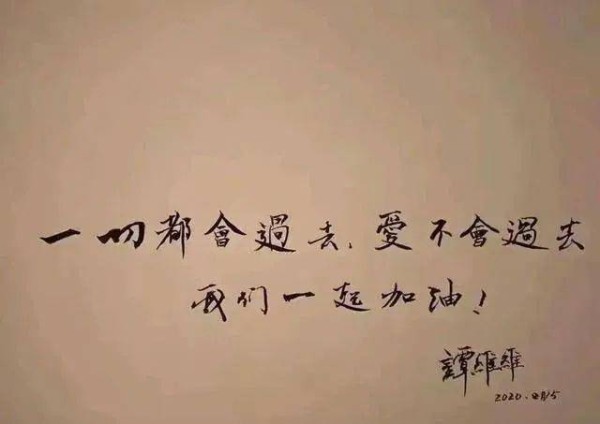 一切都會過去、愛不會過去
我们一起加油！
譚維維
2020.2月15